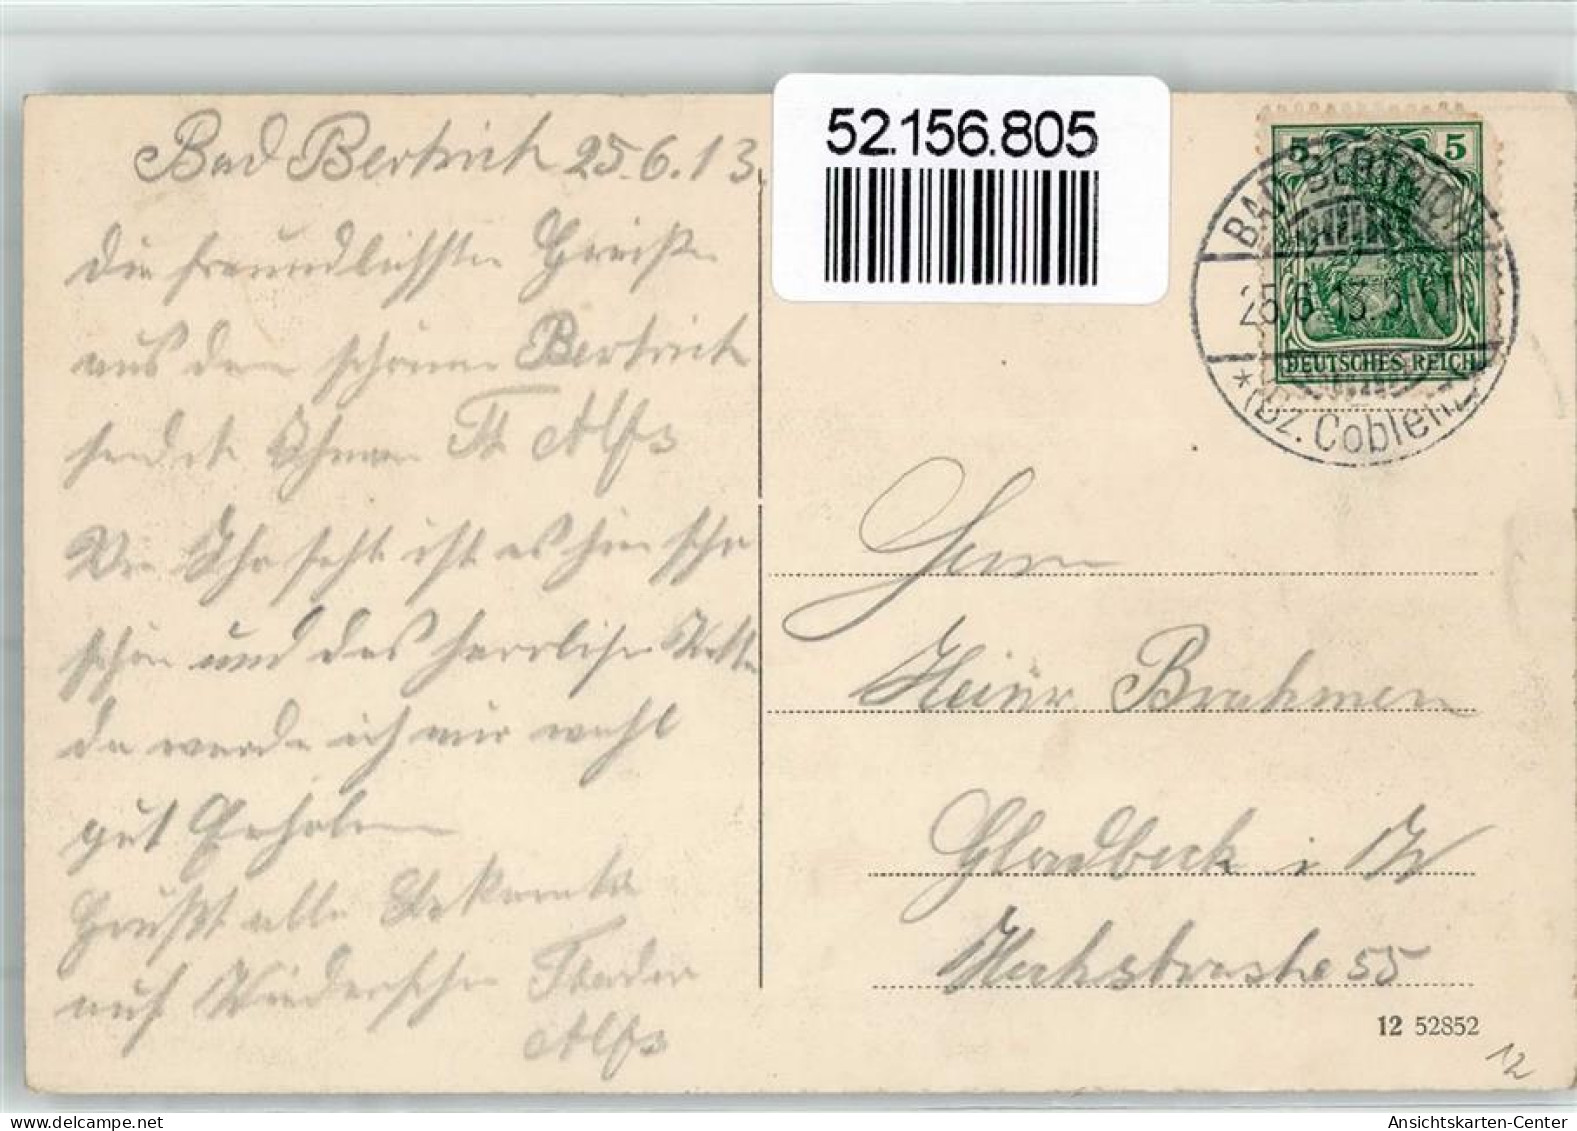 Bad Bertrich 25.6.13.
Die freundlichsten Grüße
aus dem schönen Bertrich
sendet Ihnen Fr Alfs
Wie Ihr seht ist es hier sehr
schön und das herrliche Wetter
da werde ich mir wohl
gut Erholen
Grüßt alle Bekannte
auf Wiedersehn
Alfs
52.156.805
5 5
DEUTSCHES REICH
BAD BERTRICH
25.6.13. 5-6N
* (Bz. Coblenz)
Herrn
Heinr Brahmen
Gladbeck i W
Hochstrasse 55
12 52852
12
Ansichtskarten-Center